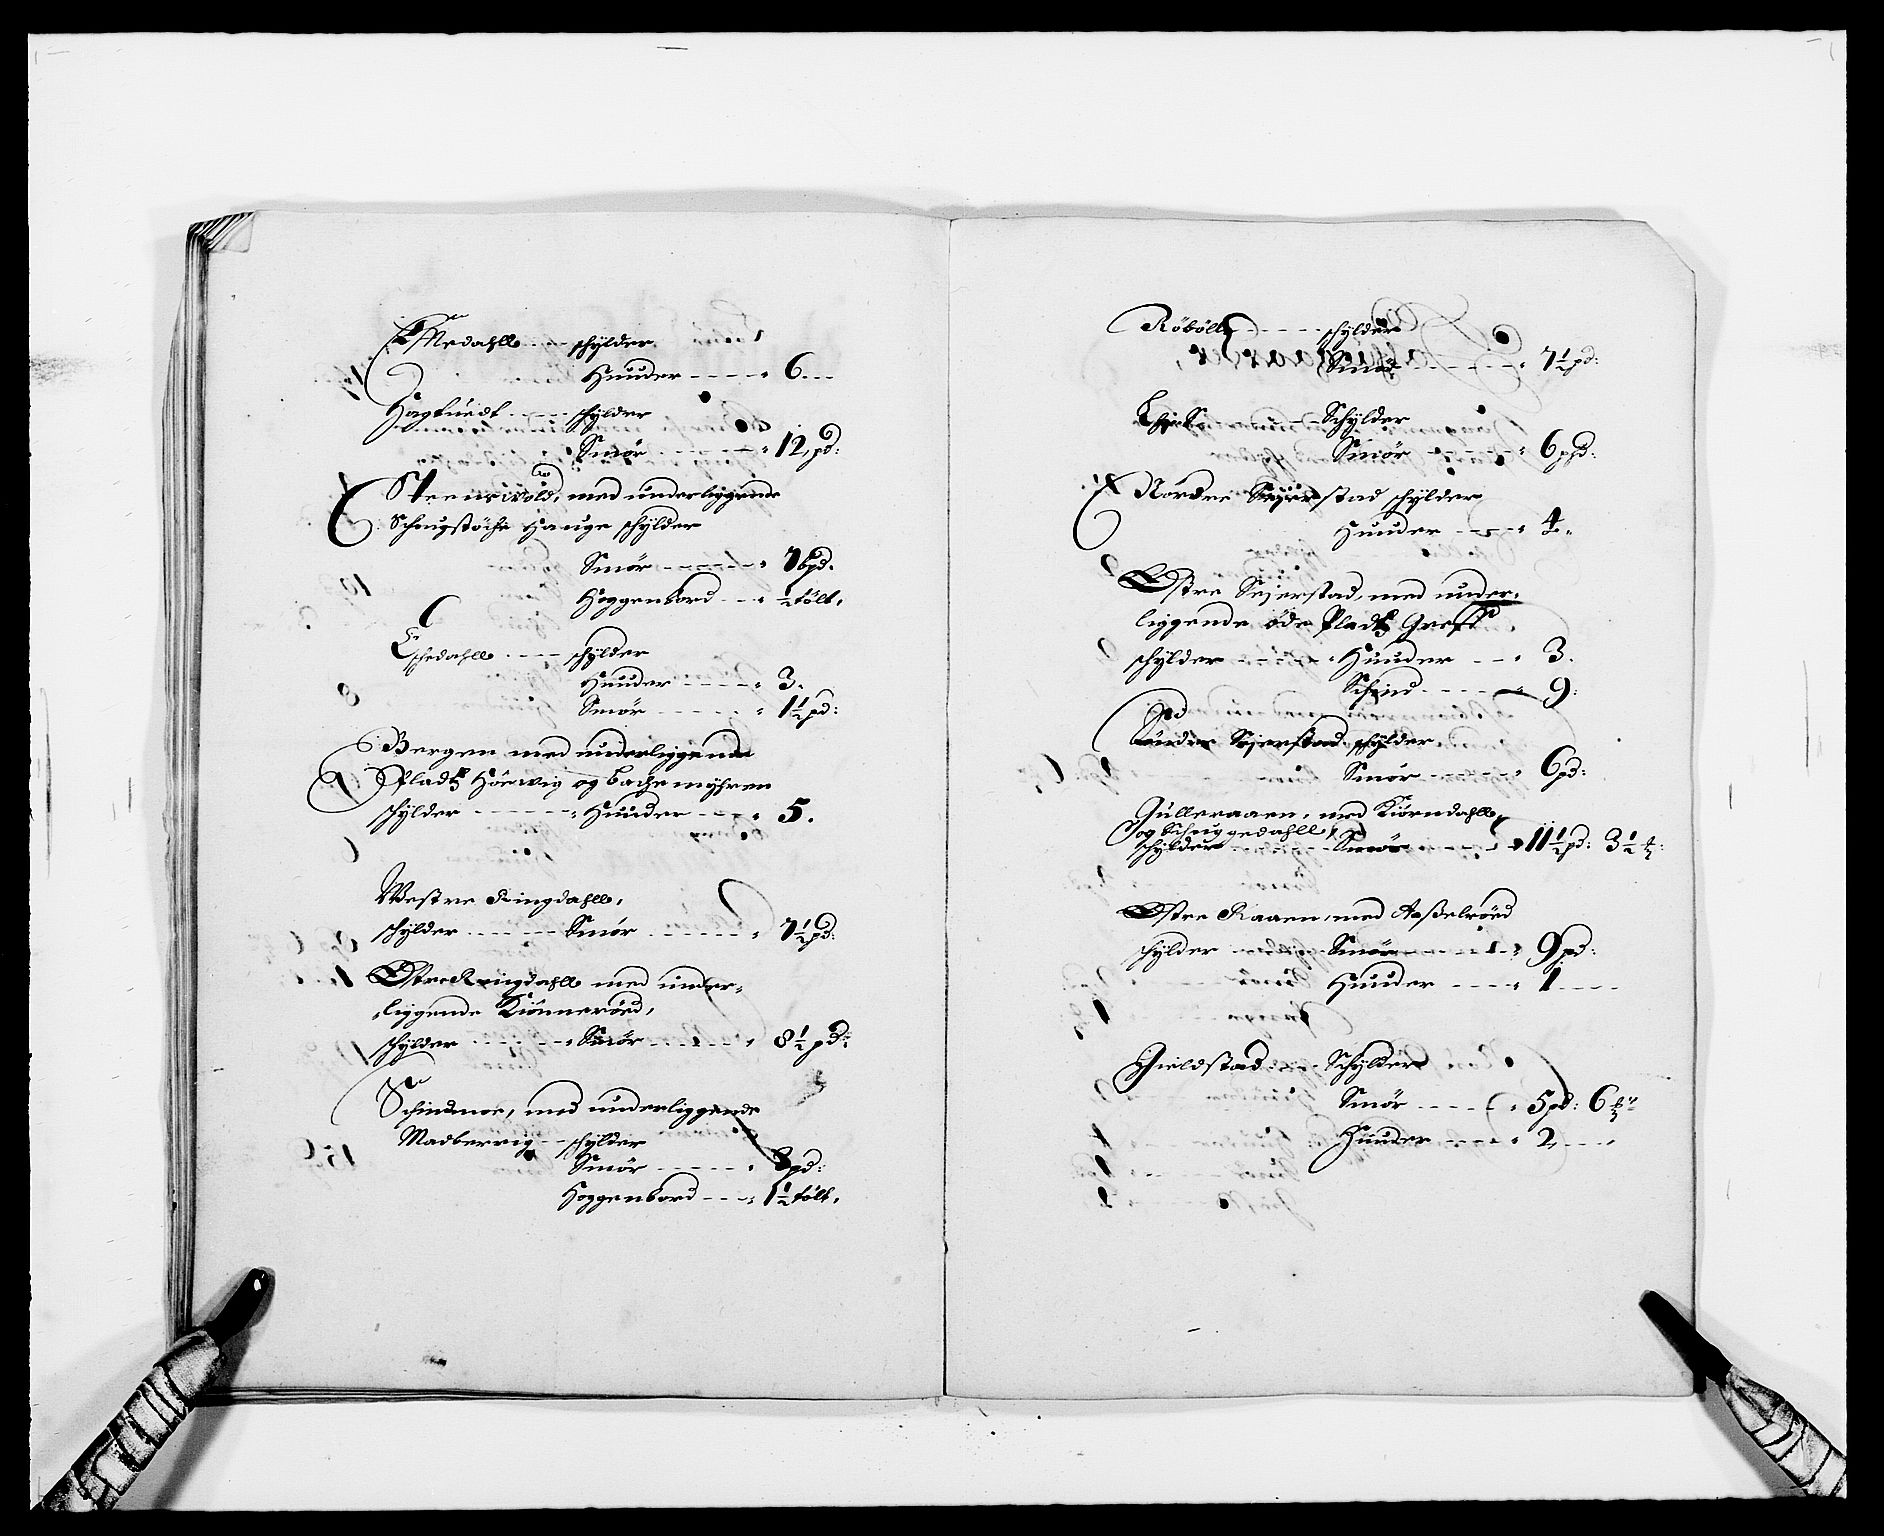 Medahlle - - schylder
Huuder - - - - 6 - -
Hagtuedt - - - schylder
Smør - - - - - 12 pd:
Steensvold, med underliggende
Schougstöche Hauge schylder
Smør - - - - 7 bpd.
Hoggenbord - - ½ tölt.
Eschedahlle - - - schylder
Huuder - - - - 3.
Smør - - - - - 1½ pd:
Bergen med underliggende
Pladtz Höevig og Bachemyhren
schylder - - - - - Huuder - - - 5.
Westre Ringdahlle,
schylder - - - - Smør - - - - - 7½ pd:
Østre Ringdahlle med under-
liggende Kiönneröed,
schylder - - - - - Smør - - - - - 8½ pd:
Schinmoe, med underliggende
Madberrig - - schylder
Smør - - - - - 8 pd:
Hoggenbord - - - 1½ tölt.
Röböll - - - - schylder
Smør - - - - - 7½ pd:
Schylder
Smør - - - - - 6 pd:
Nordre Sejerstad schylder
Huuder - - - 4.
Østre Sejerstad, med under-
liggende öde Pladtz Greff
schylder - - - - - Huuder - - - 3.
Schind - - - - 9:
Söndre Sejerstad schylder
Smør - - - - - 6 pd:
Gulleraaen, med Kiörndahlle,
og Schuggedahlle,
schylder - - - - Smør - - - - 11½ pd: 3½
Østre Raaen, med Aasselröed
schylder - - - - Smør - - - - 9 pd:
Huuder - - - - 1 - - - -
Gieldstad - - Schylder
Smør - - - - 5 pd: 6
Huuder - - - - 2 - - -